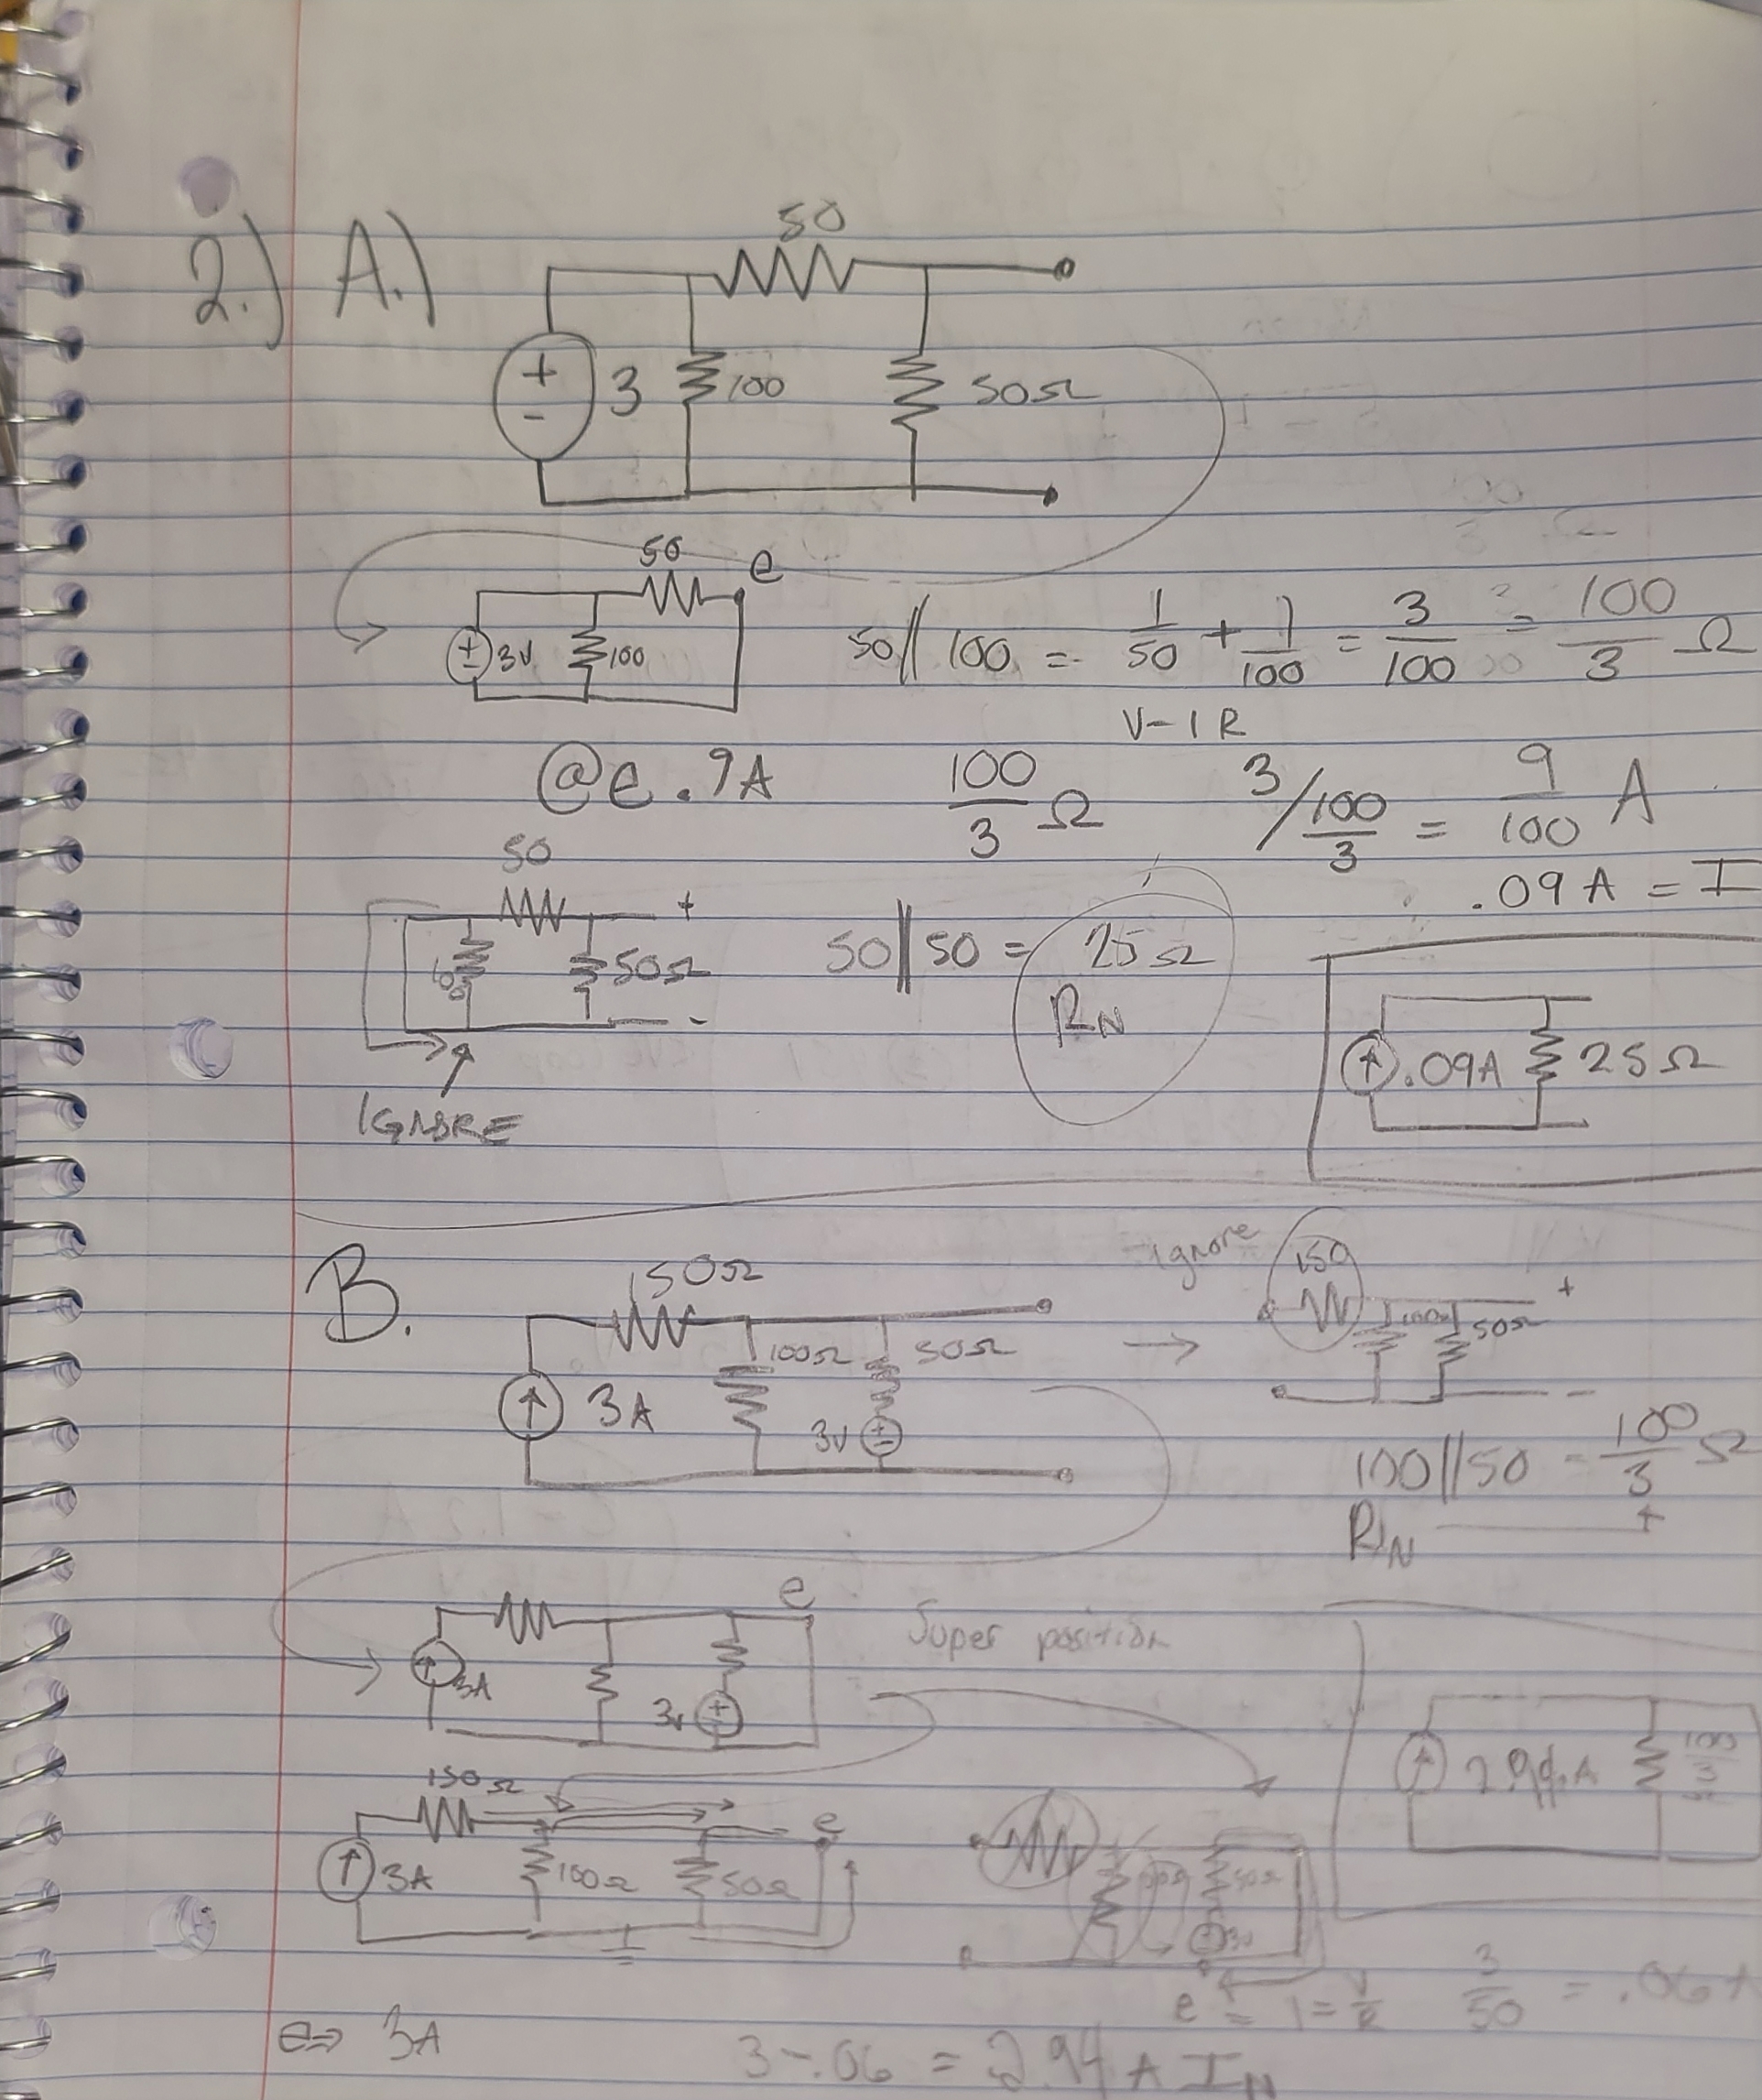 2.) A.)
50
+
-
3
100
50Ω
50
e
+
-
3V
100
50 || 100 = 1/50 + 1/100 = 3/100 = 100/3 Ω
V-IR
@e .9A
100/3 Ω
3/100/3 = 9/100 A
.09A = I
50
+
50Ω
-
IGNORE
50 || 50 = 25Ω
RN
.09A
25Ω
B.
150Ω
100Ω
50Ω
3A
3V
+
-
ignore
150
+
100Ω
50Ω
-
100||50 = 100/3 Ω
RN
e
3A
3V
+
Super position
150Ω
3A
100Ω
50Ω
e
50Ω
3V
2.94A
100/3
e = I = V/R
3/50 = .06A
e⇒ 3A
3-.06 = 2.94 A IN